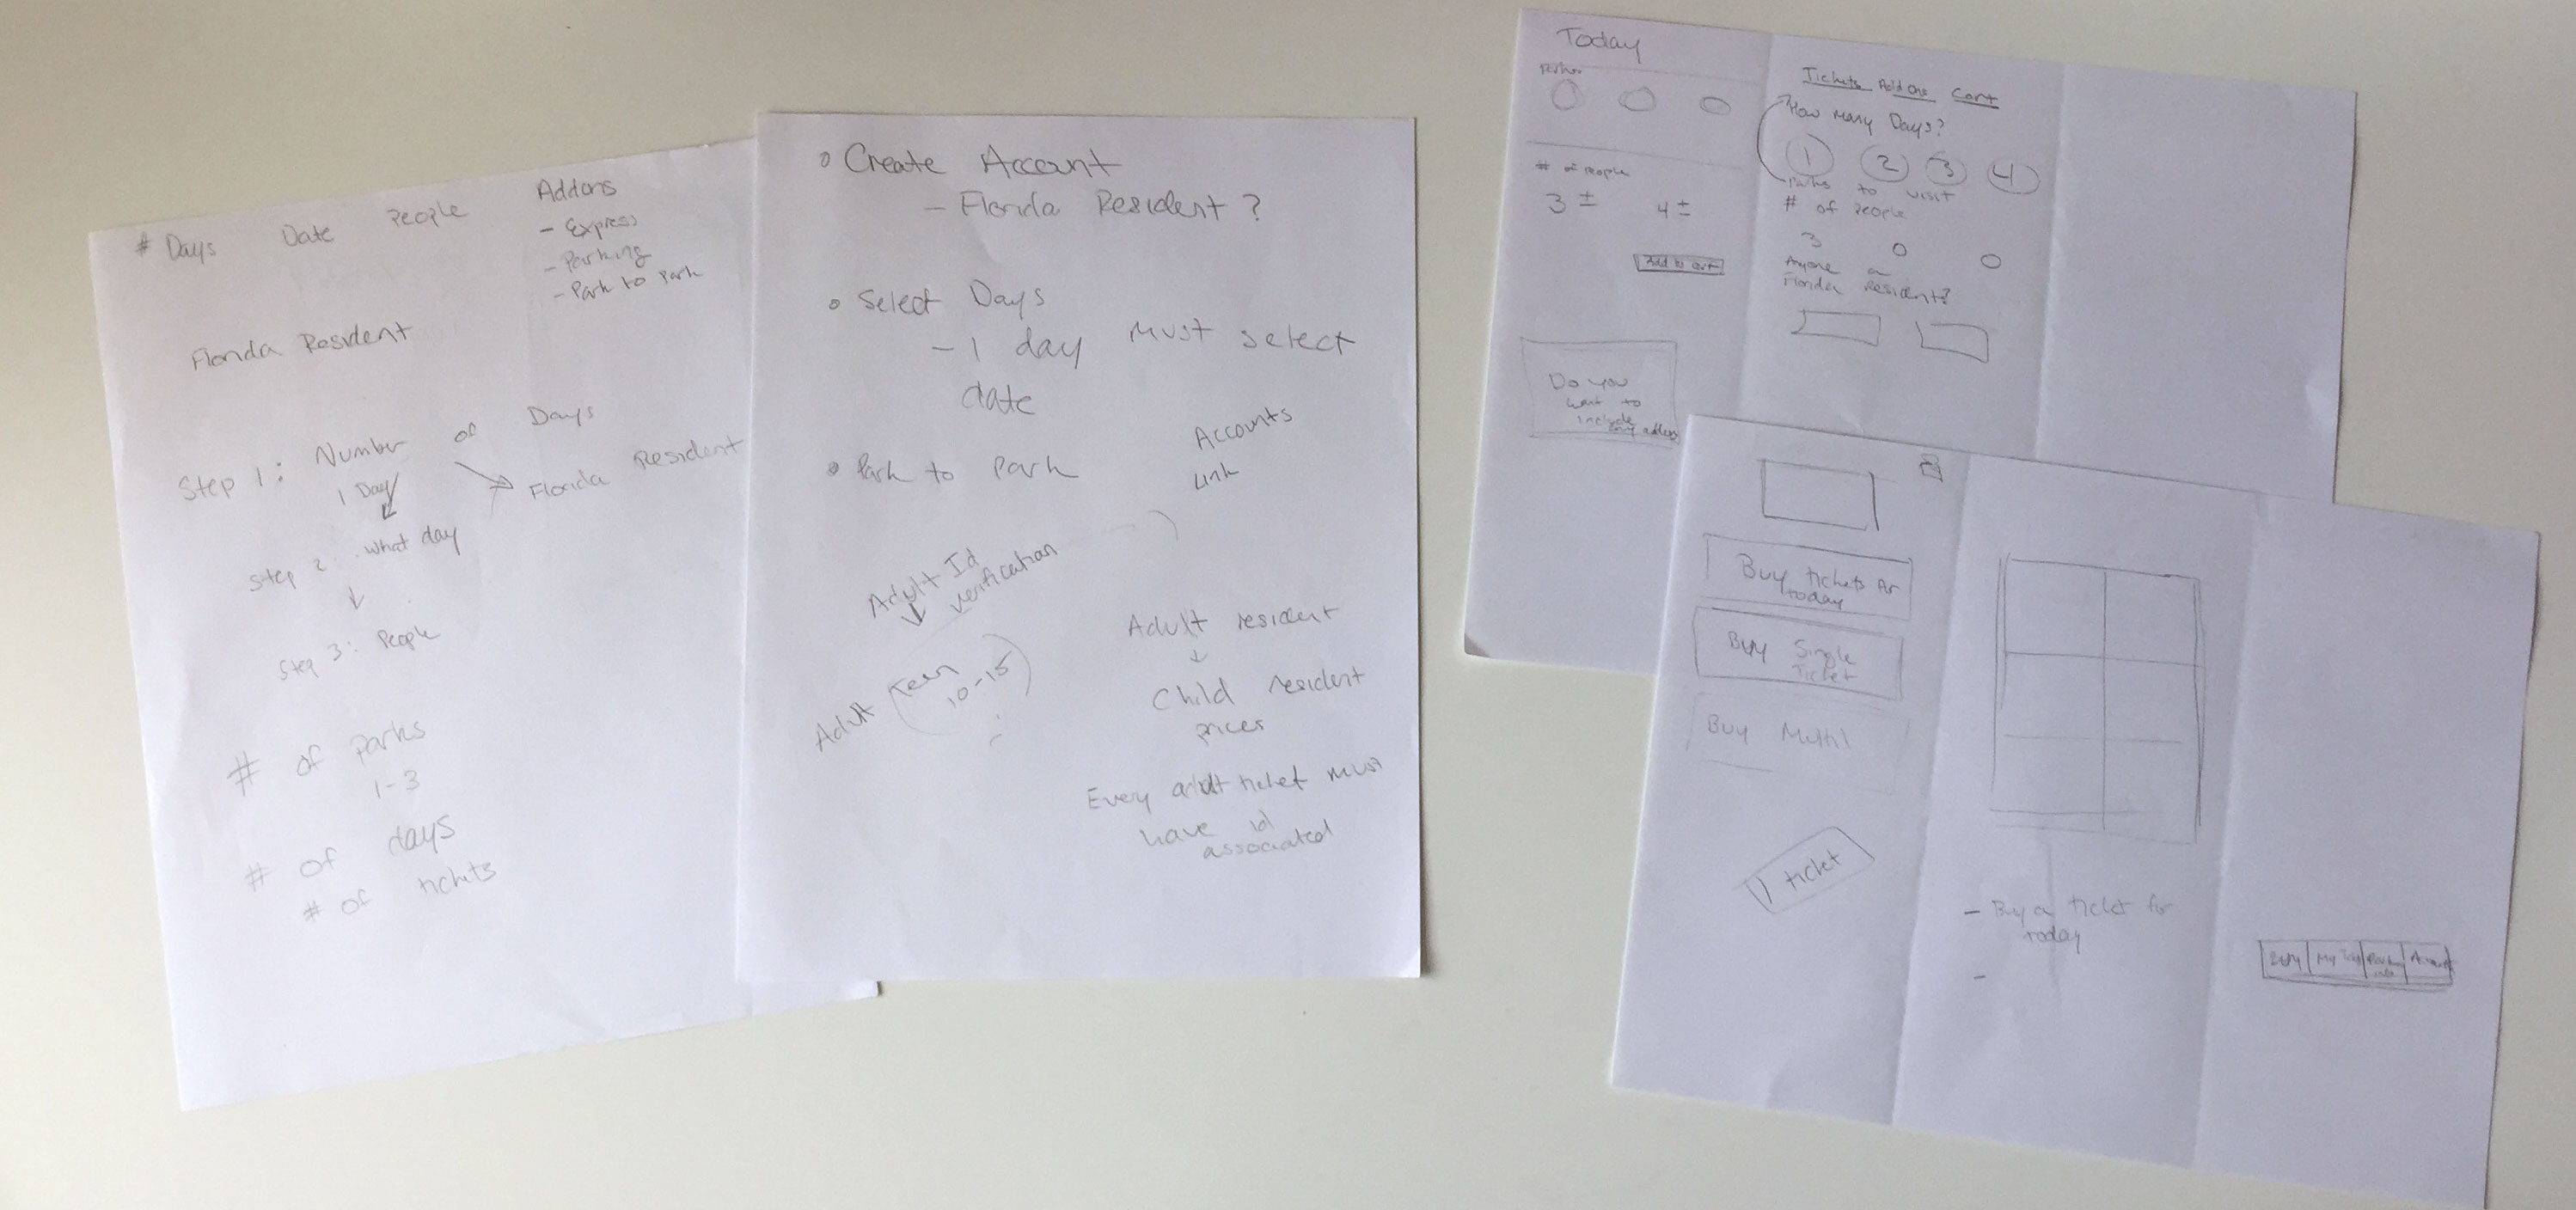 # Days Date People Addons
- Express
- Parking
- Park to Park
Florida Resident
Step 1: Number of Days
1 Day
Florida Resident
Step 2: what day
Step 3: People
# of parks
1-3
# of days
# of tickets
Create Account
- Florida Resident?
Select Days
- 1 day must select
date
Park to Park
Accounts
Link
Adult Id
verification
Adult (Teen
10-15)
Adult resident
Child resident
prices
Every adult ticket must
have id
associated
Today
# of people
3 ± 4 ±
Add to cart
Do you
want to
include
any addons
Tickets Add ons Cart
How many Days?
1 2 3 4
Parks to visit
# of People
3 0 0
Anyone a
Florida Resident?
Buy tickets for
today
Buy Single
Ticket
Buy Multi
1 ticket
- Buy a ticket for
today
-
Buy